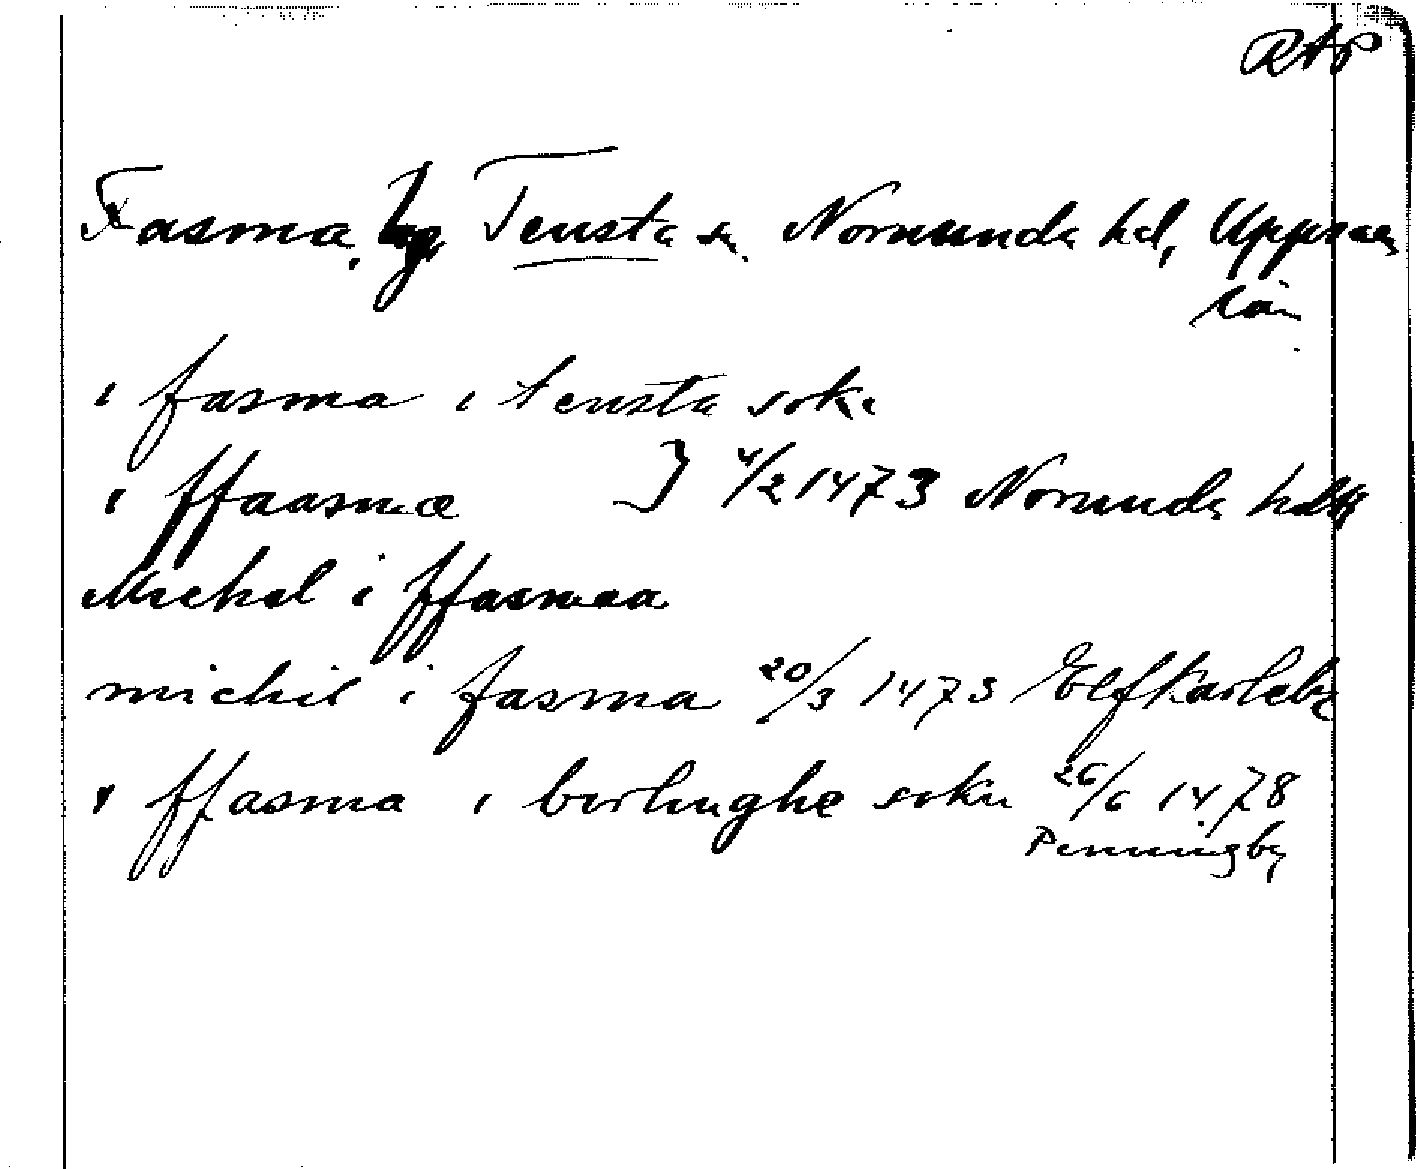 RAP
Fasma, by Tensta sn. Norunda hd, Uppsala
län
i fasma i tensta sokn
i ffaasmæ } 4/2 1473 Norunda hdtg
Michel i ffasmaa
michil i fasma 20/3 1473 Elfkarleby
i ffasma i berlinghe sokn 26/6 1478
Penningby